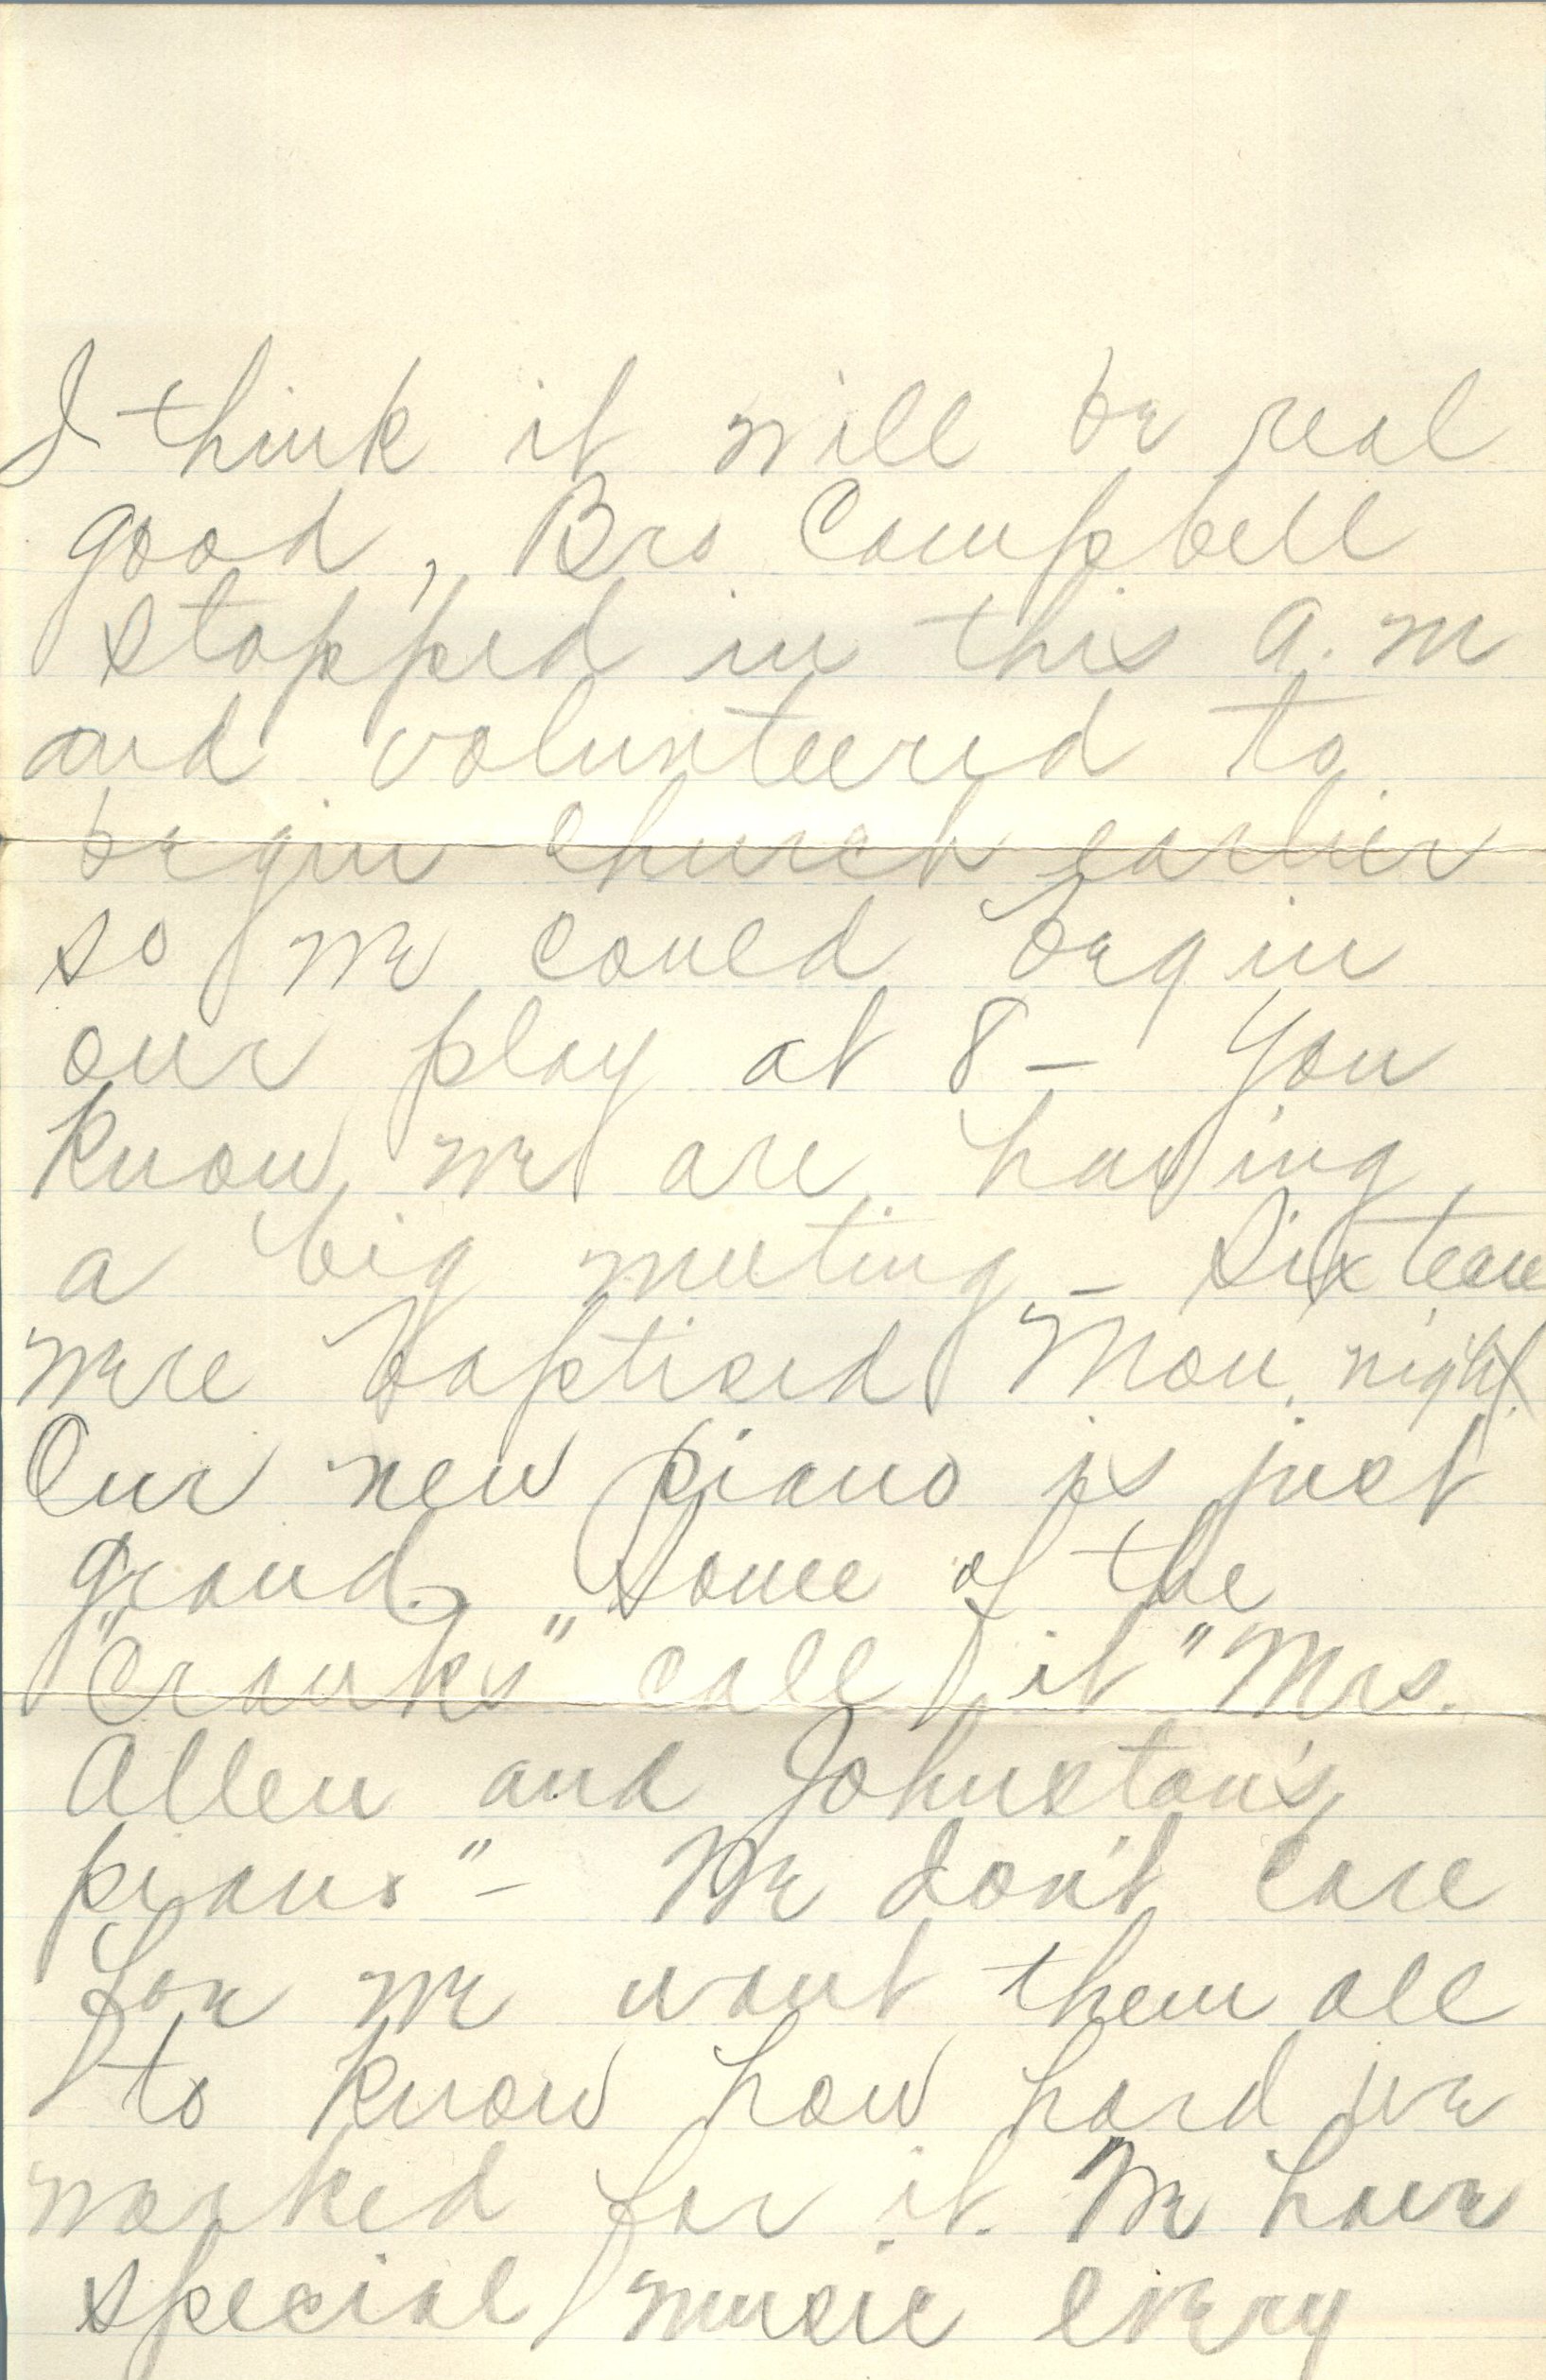 I think it will be real
good, Bro Campbell
stopped in this a.m
and volunteered to
begin church earlier
so we could begin
our play at 8 - You
know we are having
a big meeting - Sixteen
were baptised Mon. night.
Our new piano is just
grand. Some of the
"cranks" call it "Mrs.
Allen and Johnston's
piano" - We don't care
for we want them all
to know how hard we
worked for it. We have
special music every